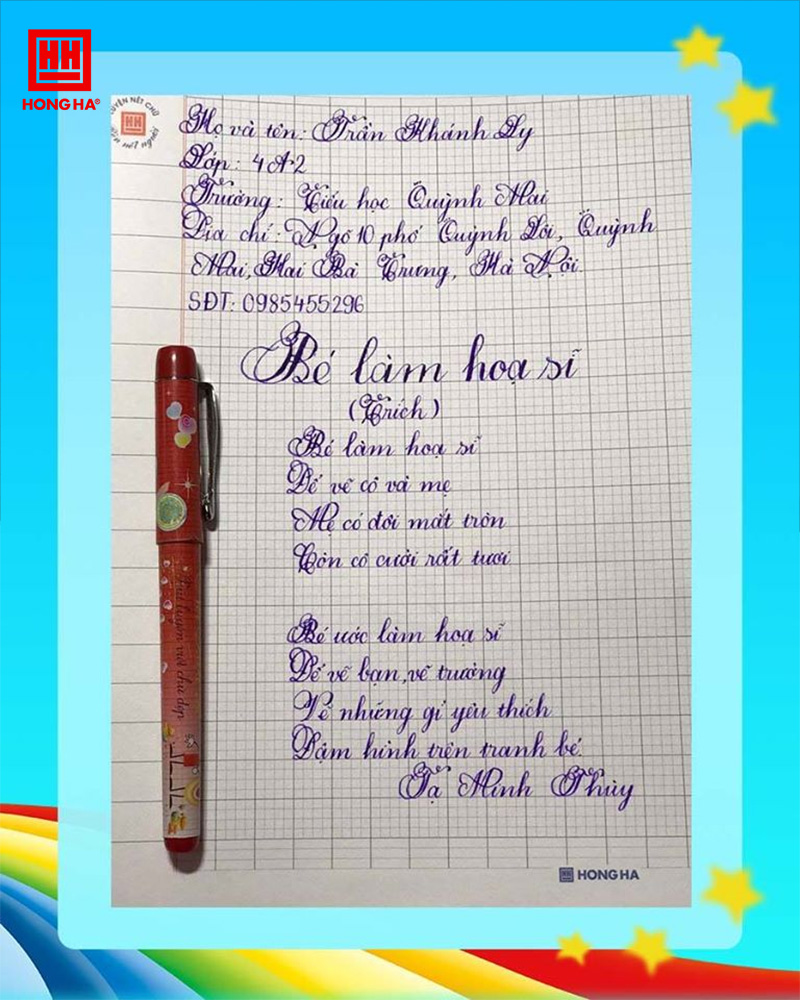 HH
HONG HA®
LUYỆN NÉT CHỮ
rèn nết người
Họ và tên: Trần Khánh Ly
Lớp: 4A2
Trường: Tiểu học Quỳnh Mai
Địa chỉ: Ngõ 10 phố Quỳnh Lôi, Quỳnh
Mai, Hai Bà Trưng, Hà Nội
SĐT: 0985455296
Bé làm hoạ sĩ
(Trích)
Bé làm hoạ sĩ
Để vẽ cô và mẹ
Mẹ có đôi mắt tròn
Còn cô cười rất tươi
Bé ước làm hoạ sĩ
Để vẽ bạn, vẽ trường
Vẽ những gì yêu thích
Đậm hình trên tranh bé
Tạ Minh Thủy
Bút luyện viết chữ đẹp
HONG HA